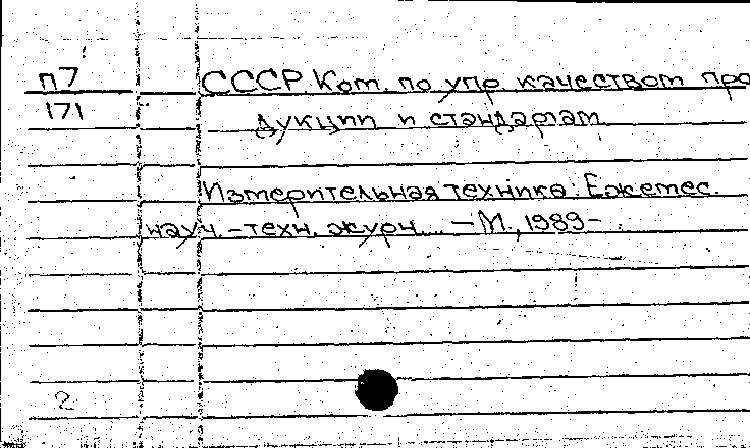 п7
171
СССР. Ком. по упр. качеством про
дукции и стандартам.
Измерительная техника: Ежемес.
науч.-техн. журн.... – М., 1989–
2